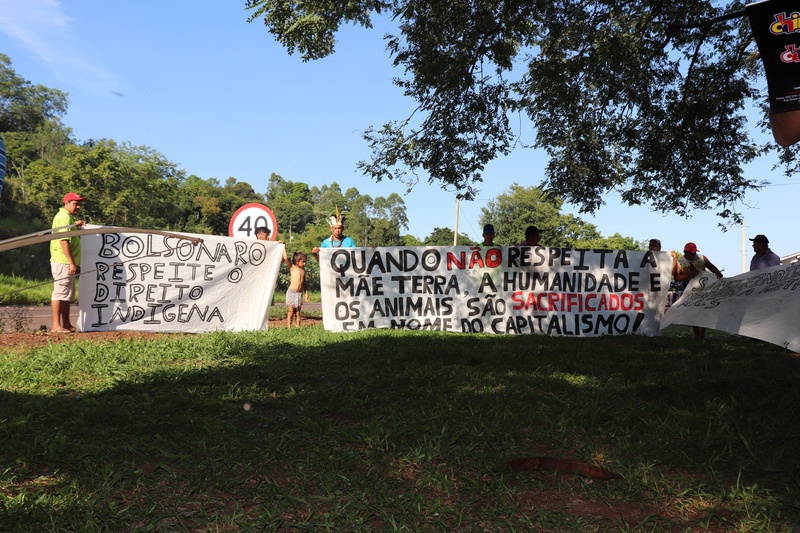 BOLSONARO
RESPEITE O
DIREITO
INDÍGENA
40
QUANDO NÃO RESPEITA A
MÃE TERRA, A HUMANIDADE E
OS ANIMAIS SÃO SACRIFICADOS
EM NOME DO CAPITALISMO!